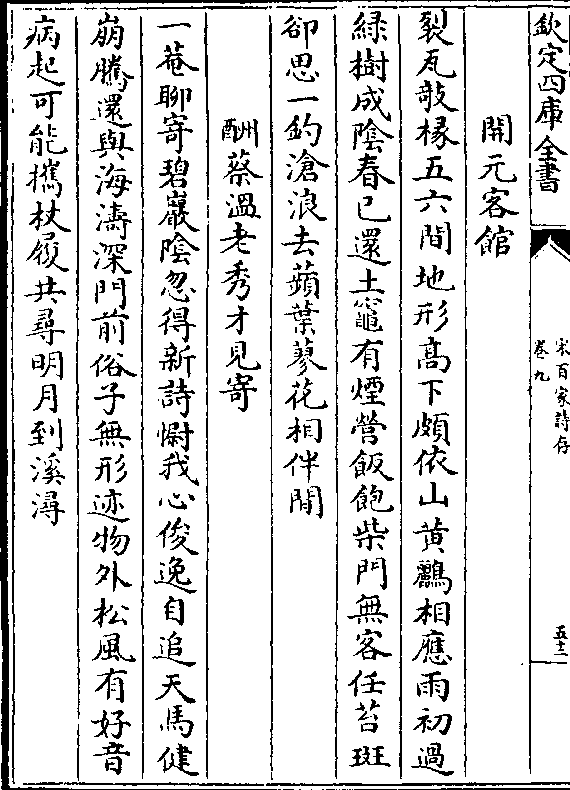 欽定四庫全書
宋百家詩存
卷九
五十三
開元客館
裂瓦敧椽五六間地形髙下頗依山黄鸝相應雨初過
綠樹成陰春已還土竈有煙營飯飽柴門無客任苔斑
卻思一釣滄浪去蘋葉蓼花相伴閒
酬蔡溫老秀才見寄
一菴聊寄碧巖陰忽得新詩慰我心俊逸自追天馬健
崩騰還與海濤深門前俗子無形迹物外松風有好音
病起可能攜杖屨共尋明月到溪潯